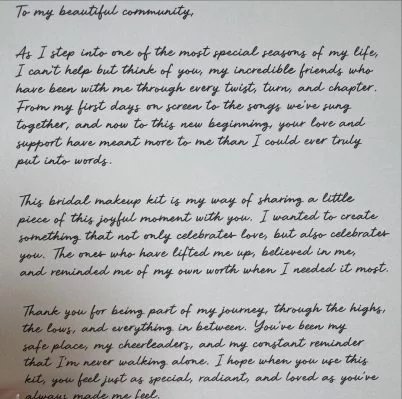 To my beautiful community,
As I step into one of the most special seasons of my life,
I can't help but think of you, my incredible friends who
have been with me through every twist, turn, and chapter.
From my first days on screen to the songs we've sung
together, and now to this new beginning, your love and
support have meant more to me than I could ever truly
put into words.
This bridal makeup kit is my way of sharing a little
piece of this joyful moment with you. I wanted to create
something that not only celebrates love, but also celebrates
you. The ones who have lifted me up, believed in me,
and reminded me of my own worth when I needed it most.
Thank you for being part of my journey, through the highs,
the lows, and everything in between. You've been my
safe place, my cheerleaders, and my constant reminder
that I'm never walking alone. I hope when you use this
kit, you feel just as special, radiant, and loved as you've
always made me feel.